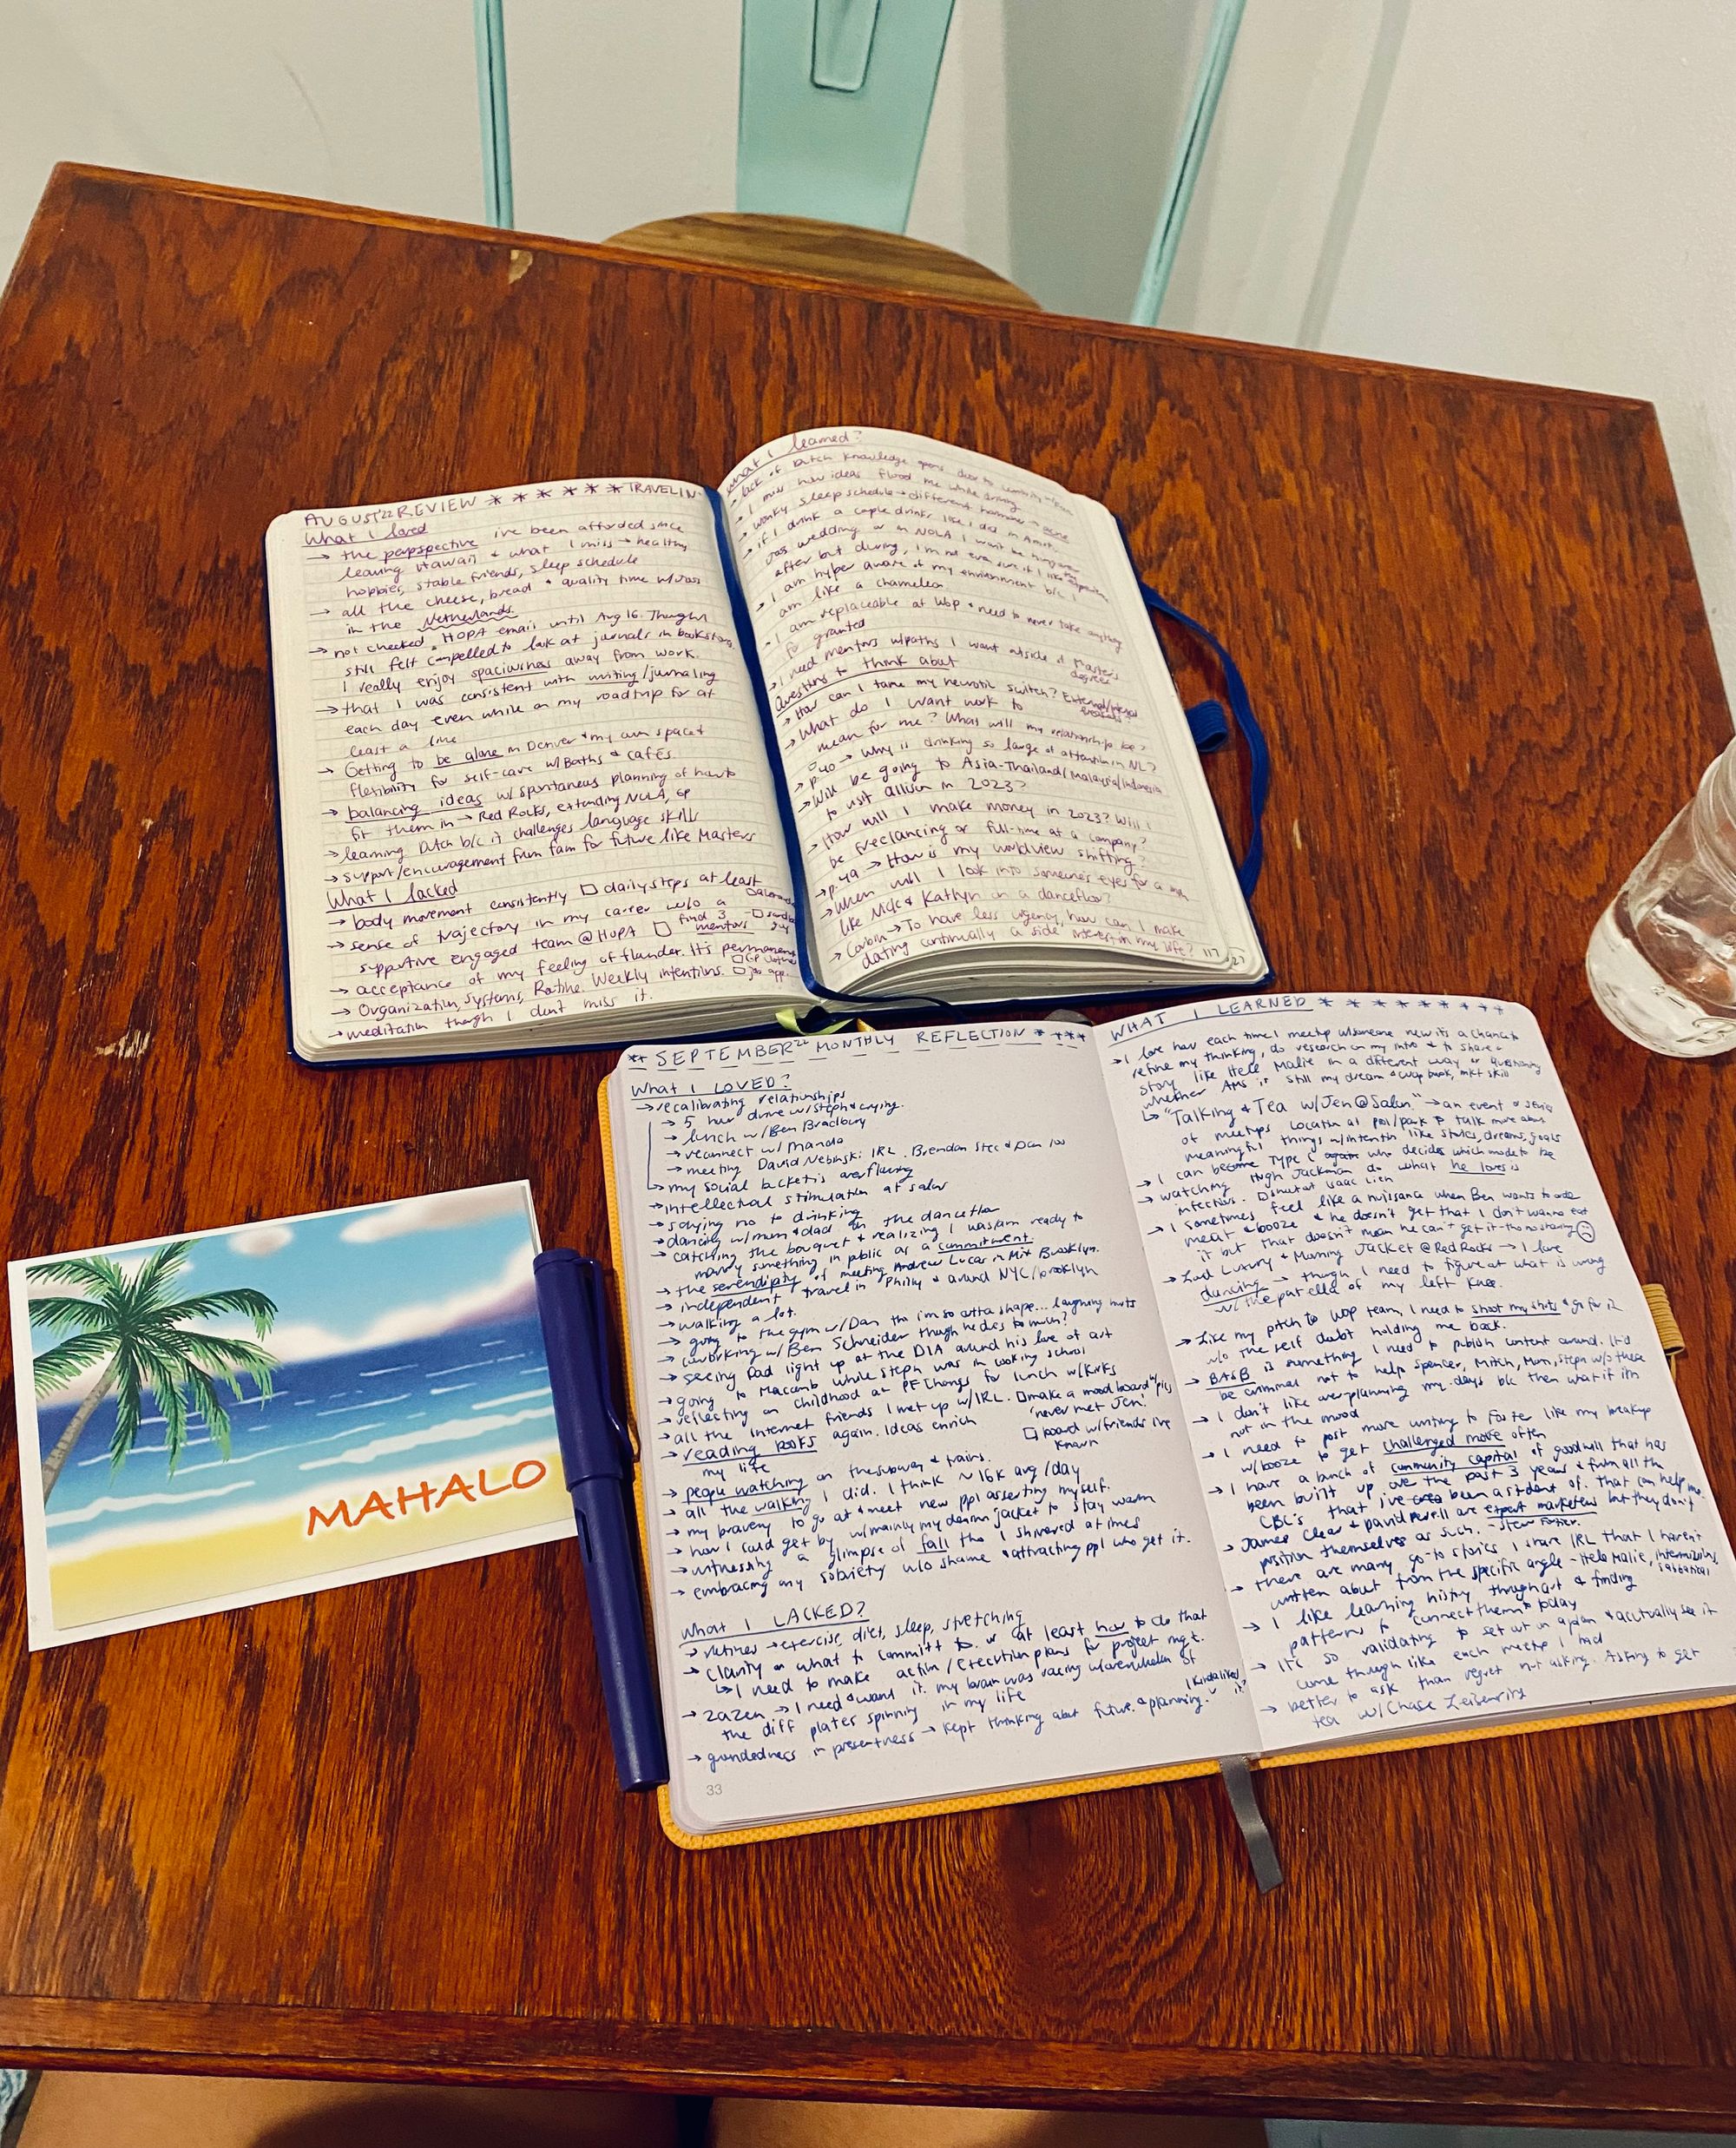 AUGUST'22 REVIEW ****** TRAVELIN'
What I loved
→ the perpspective ive been afforded since
leaving Hawaii & what I miss → healthy
hobbies, stable friends, sleep schedule
→ all the cheese, bread & quality time w/Joss
in the Netherlands.
→ not checked HOPA email until Aug 16. Though I
still felt compelled to look at journals in bookstores.
I really enjoy spaciousness away from work.
→ that I was consistent with writing/journaling
each day even while on my roadtrip for at
least a line
→ Getting to be alone in Denver & my own space &
flexibility for self-care w/Baths & cafés.
→ balancing ideas w/spontaneous planning of how to
fit them in → Red Rocks, extending NOLA, GP
→ learning Dutch b/c it challenges language skills
→ support/encouragement from fam for future like Masters
What I lacked
→ body movement consistently □ daily steps at least
→ sense of trajectory in my career w/o a
supportive engaged team @HOPA □ find 3 mentors
→ acceptance of my feeling of flounder. It's permanent
→ Organization, Systems, Routine. Weekly intentions. □ job app.
→ meditation though I dont miss it.
What I learned?
lack of Dutch knowledge
I miss how ideas flood me while driving
wonky sleep schedule → different hormones → acne
→ if I drink a couple drinks like I did in
Joss wedding or in NOLA I won't be hungover
after but during, I'm not even sure if I like
→ I am hyper aware of my environment b/c I
am like a chameleon
→ I am replaceable at WOP & need to never take anything
for granted
→ I need mentors w/paths I want outside of Master's
degrees
Questions to think about
→ How can I tame my neurotic switch? External/internal
→ What do I want work to
mean for me? What will my relationship be?
→ p.20 → why is drinking so large of attention in NL?
→ Will I be going to Asia-Thailand/Malaysia/Indonesia
to visit Allison in 2023?
→ How will I make money in 2023? Will I
be freelancing or full-time at a company?
→ p.49 → How is my worldview shifting?
→ When will I look into someone's eyes for a
like Nick & Kathryn on a dancefloor?
→ Corbin → To have less urgency how can I make
dating continually a side interest in my life?
117
MAHALO
** SEPTEMBER'22 MONTHLY REFLECTION ****
What I LOVED?
→ recalibrating relationships
→ 5 hour drive w/Steph & crying.
→ lunch w/Ben Bradbury
→ reconnect w/Manda
→ meeting David Nebinski IRL. Brendan
→ my social bucket is overflowing
→ intellectual stimulation at salon
→ saying no to drinking
→ dancing w/mum & dad on the dancefloor
→ catching the bouquet & realizing I was/am ready to
marry something in public as a commitment.
→ the serendipity of meeting Andrew Lucas in Brooklyn.
→ independent travel in Philly & around NYC/brooklyn
→ walking a lot.
→ going to the gym w/Dan tho im so outta shape... laughing hurts
→ coworking w/Ben Schneider though he does too much?
→ seeing Dad light up at the DIA around his love of art
→ going to Macomb while Steph was in cooking school
→ reflecting on childhood at PF Changs for lunch w/Kirks
→ all the internet friends I met up w/IRL. □ make a mood board w/pics
'never met Jen'
→ reading books again. Ideas enrich
my life
□ board w/friends ive
known
→ people watching on the subway & trains.
→ all the walking I did. I think ~16K avg/day
→ my bravery to go at & meet new ppl asserting myself.
→ how I could get by w/mainly my denim jacket to stay warm
→ witnessing a glimpse of fall tho I shivered at times
→ embracing my sobriety w/o shame & attracting ppl who get it.
What I LACKED?
→ routines → exercise, diet, sleep, stretching
→ clarity on what to committ to. or at least how to do that
→ I need to make action/execution plans for project mgt.
→ zazen → I need & want it. my brain was racing w/overwhelm of
the diff plates spinning in my life
→ groundedness in presentness → kept thinking about future & planning. (kinda liked it?)
33
WHAT I LEARNED *********
→ I love how each time I meetup w/someone new its a chance to
refine my thinking, do research on my intro & to share a
story like Hele Malie in a different way or questioning
whether AMS is still my dream & WOP book, mkt skill
↳ "Talking & Tea w/Jen@Salon" → an event or series
of meetups located at pool/park to talk more about
meaningful things w/intention like stories, dreams, goals
→ I can become Type C who decides which mode to be
→ watching Hugh Jackman do what he loves is
infectious.
→ I sometimes feel like a nuissance when Ben wants to order
meat & booze & he doesn't get that I don't wanna eat
it but that doesn't mean he can't get it-tho no sharing ☹
→ Lord Luxury & Morning Jacket @RedRocks → I love
dancing → though I need to figure at what is wrong
w/the patella of my left knee.
→ Like my pitch to WOP team, I need to shoot my shots & go for it
w/o the self doubt holding me back.
→ BASB is something I need to publish content around. It'd
be criminal not to help Spencer, Mitch, Mom, Steph w/o these
→ I don't like overplanning my days b/c then what if im
not in the mood
→ I need to post more writing to Foster like my breakup
w/booze to get challenged more often
→ I have a bunch of community capital of goodwill that has
been built up over the past 3 years & from all the
CBC's that I've been a student of. that can help me.
→ James Clear & David Perell are expert marketers but they don't
position themselves as such. - Stew Fortier.
→ there are many go-to stories I share IRL that I haven't
written about from the specific angle - Hele Malie, internships, sabbatical
→ I like learning history through art & finding
patterns to connect them to today
→ It's so validating to set out on a plan & acctually see it
come through like each meetup I had
→ better to ask than regret not asking. Asking to get
tea w/Chase